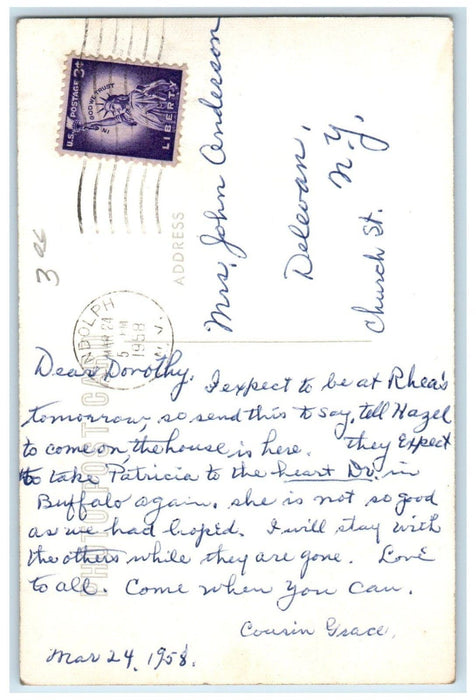 U.S. POSTAGE 3¢
IN GOD WE TRUST
LIBERTY
3 ac
ADDRESS
Mrs. John Anderson
Delevan,
N.Y,
Church St.
RANDOLPH
MAR 24
5 PM
1958
N.Y.
PHOTO POST CARD
Dear Dorothy, I expect to be at Rhea's
tomorrow, so send this to say, tell Hazel
to come on the house is here. They expect
to take Patricia to the heart Dr. in
Buffalo again. she is not so good
as we had hoped. I will stay with
the others while they are gone. Love
to all. Come when you can.
Cousin Grace,
Mar 24, 1958.